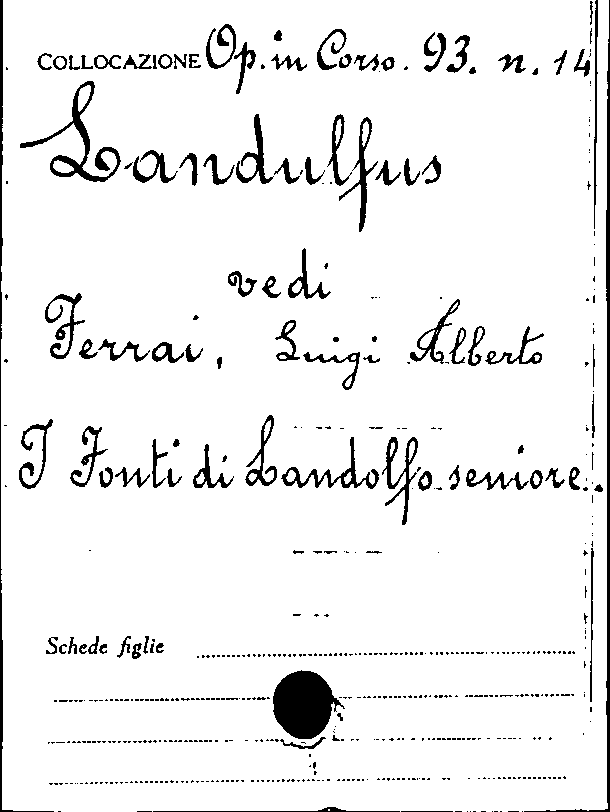 COLLOCAZIONE Op. in Corso. 93. n. 14
Landulfus
vedi
Ferrai, Luigi Alberto
I Fonti di Landolfo seniore.
Schede figlie